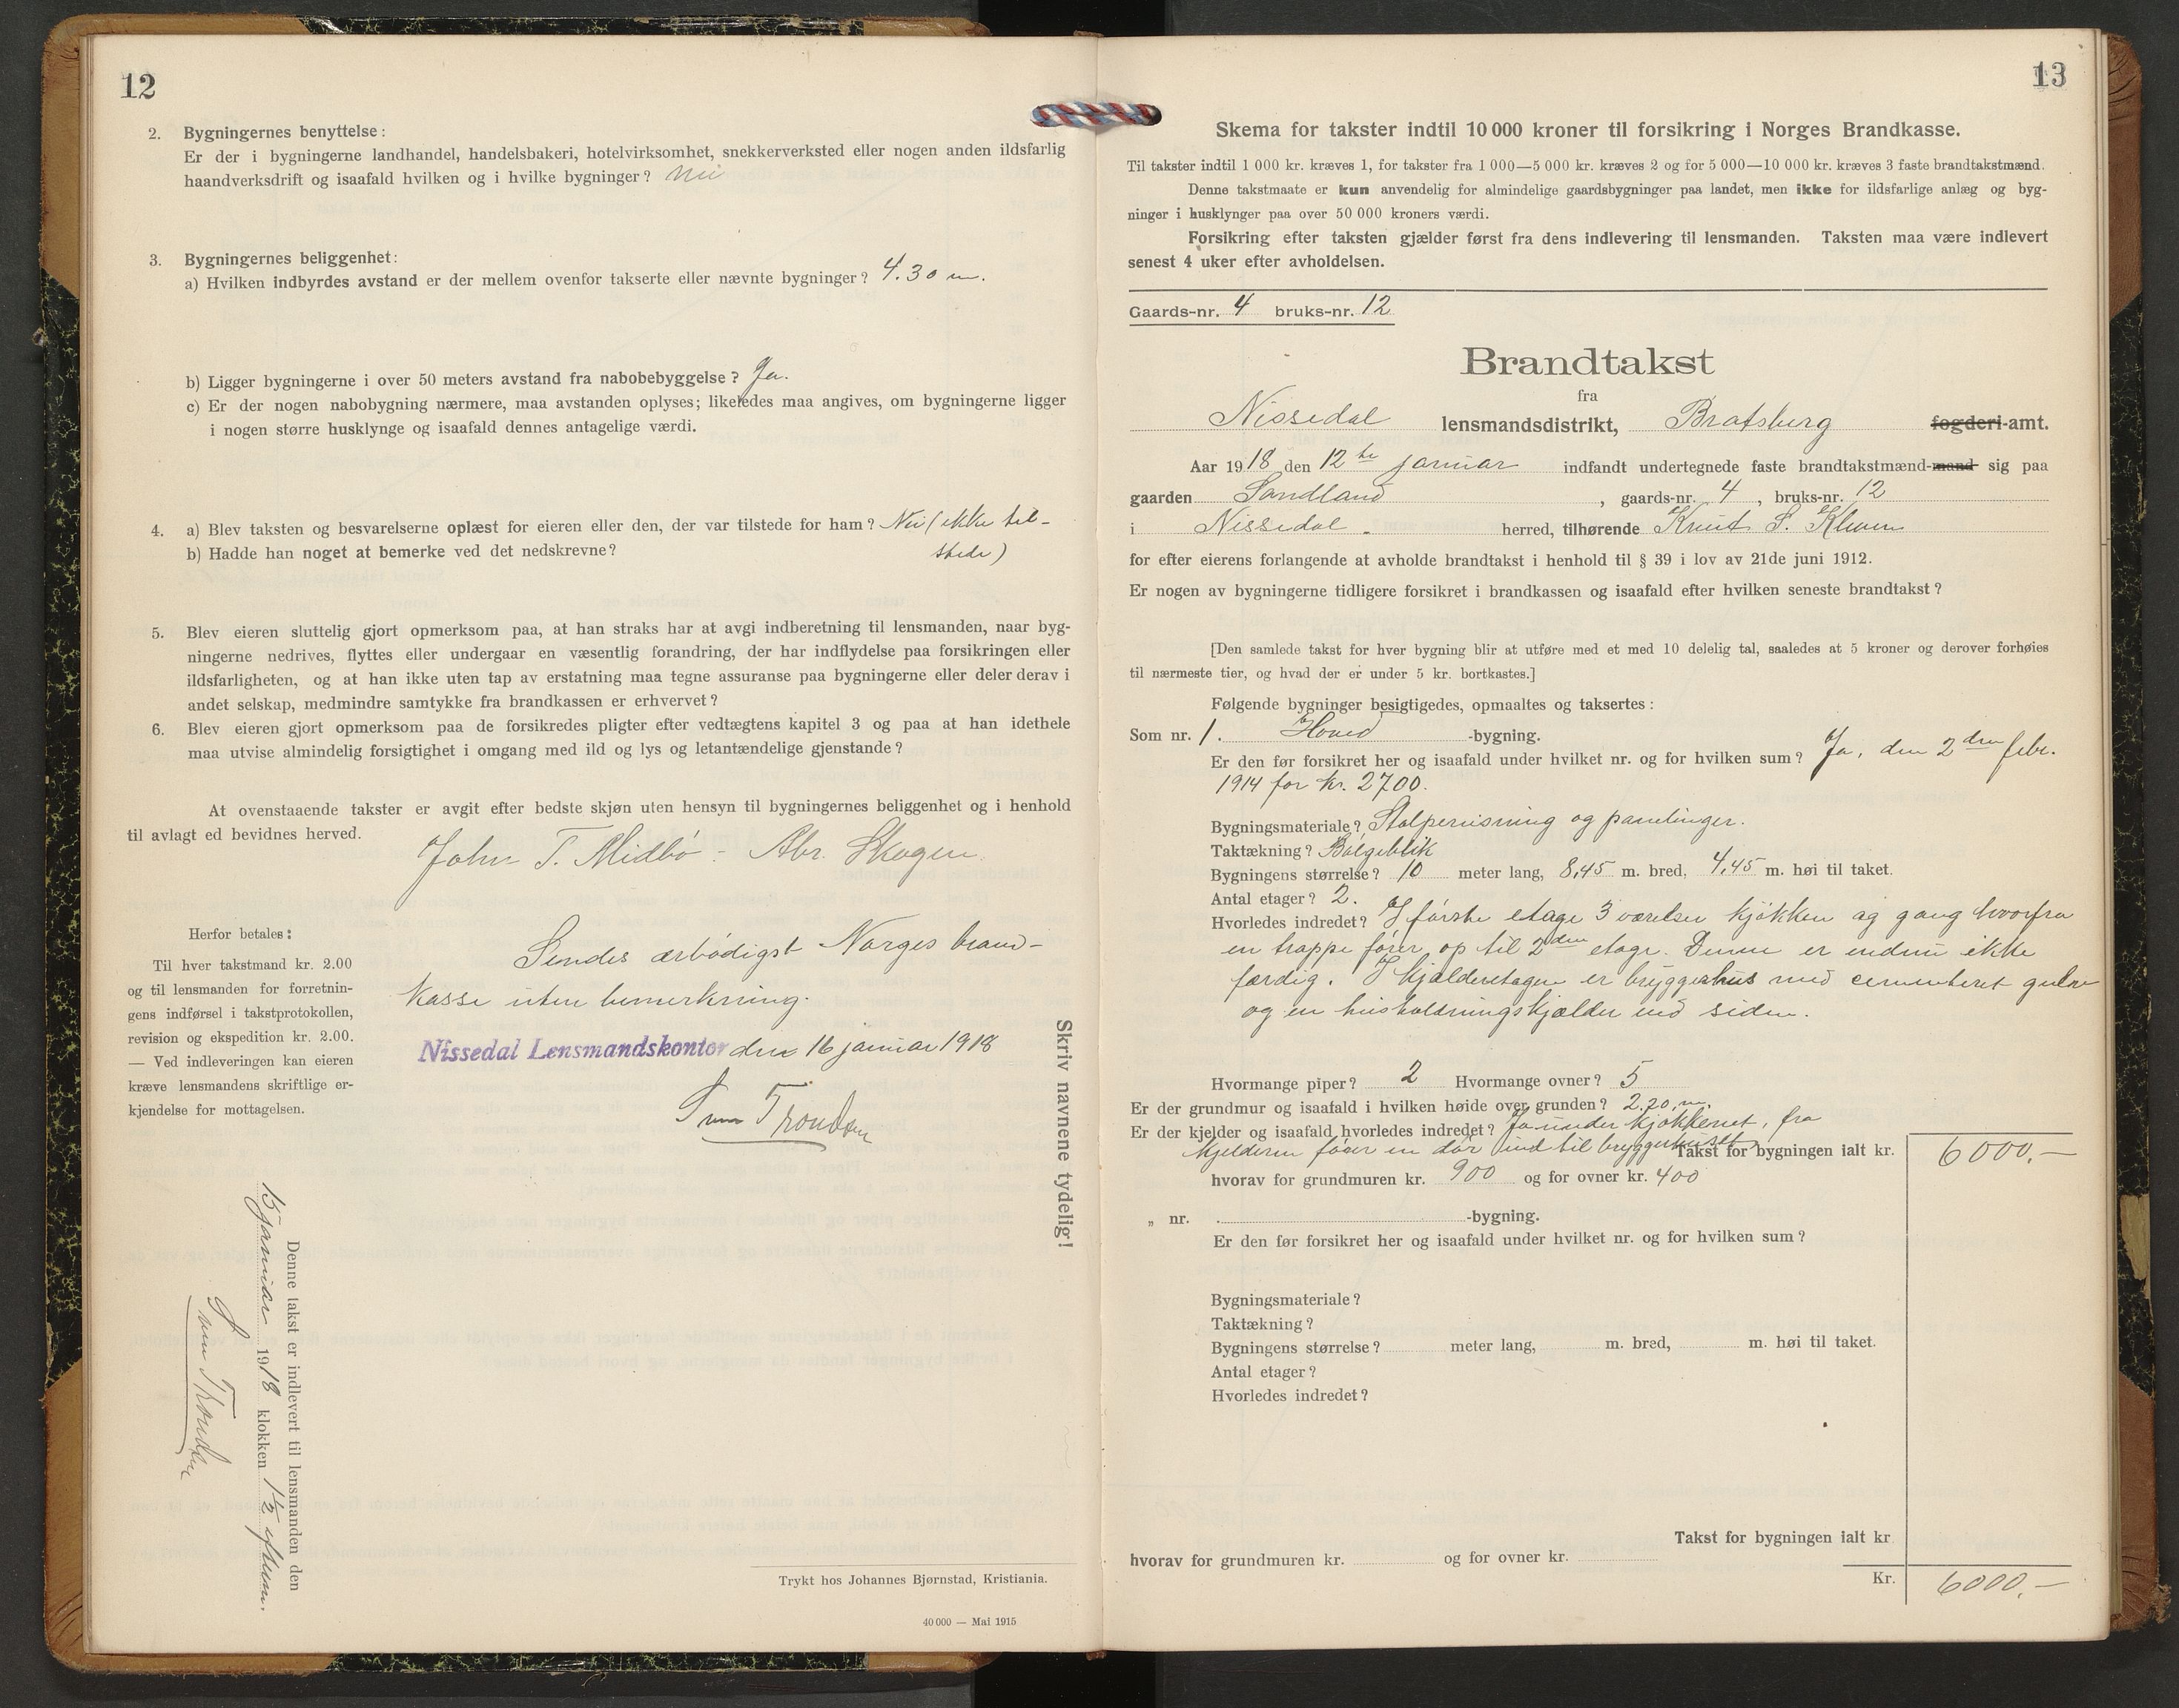 12
2. Bygningernes benyttelse:
Er der i bygningerne landhandel, handelsbakeri, hotelvirksomhet, snekkerverksted eller nogen anden ildsfarlig
haandverksdrift og isaafald hvilken og i hvilke bygninger? Nei
3. Bygningernes beliggenhet:
a) Hvilken indbyrdes avstand er der mellem ovenfor takserte eller nævnte bygninger? 4.30 m.
b) Ligger bygningerne i over 50 meters avstand fra nabobebyggelse? Ja.
c) Er der nogen nabobygning nærmere, maa avstanden oplyses; likeledes maa angives, om bygningerne ligger
i nogen større husklynge og isaafald dennes antagelige værdi.
4. a) Blev taksten og besvarelserne oplæst for eieren eller den, der var tilstede for ham? Nei (ikke til-
b) Hadde han noget at bemerke ved det nedskrevne? stede)
5. Blev eieren sluttelig gjort opmerksom paa, at han straks har at avgi indberetning til lensmanden, naar byg-
ningerne nedrives, flyttes eller undergaar en væsentlig forandring, der har indflydelse paa forsikringen eller
ildsfarligheten, og at han ikke uten tap av erstatning maa tegne assuranse paa bygningerne eller deler derav i
andet selskap, medmindre samtykke fra brandkassen er erhvervet?
6. Blev eieren gjort opmerksom paa de forsikredes pligter efter vedtægtens kapitel 3 og paa at han idethele
maa utvise almindelig forsigtighet i omgang med ild og lys og letantændelige gjenstande?
At ovenstaaende takster er avgit efter bedste skjøn uten hensyn til bygningernes beliggenhet og i henhold
til avlagt ed bevidnes herved.
John T. Midbö - Abr. Skogen.
Herfor betales:
Til hver takstmand kr. 2.00
og til lensmanden for forretnin-
gens indførsel i takstprotokollen,
revision og ekspedition kr. 2.00.
— Ved indleveringen kan eieren
kræve lensmandens skriftlige er-
kjendelse for mottagelsen.
Sendes ærbödigst Norges brand-
kasse uten bemerkning.
Nissedal Lensmandskontor den 16 januar 1918
Trondsen
Skriv navnene tydelig!
Denne takst er indlevert til lensmanden den
15 januar 1918 klokken 1½
Trondsen
Trykt hos Johannes Bjørnstad, Kristiania.
40 000 — Mai 1915
13
Skema for takster indtil 10 000 kroner til forsikring i Norges Brandkasse.
Til takster indtil 1 000 kr. kræves 1, for takster fra 1 000—5 000 kr. kræves 2 og for 5 000—10 000 kr. kræves 3 faste brandtakstmænd.
Denne takstmaate er kun anvendelig for almindelige gaardsbygninger paa landet, men ikke for ildsfarlige anlæg og byg-
ninger i husklynger paa over 50 000 kroners værdi.
Forsikring efter taksten gjælder først fra dens indlevering til lensmanden. Taksten maa være indlevert
senest 4 uker efter avholdelsen.
Gaards-nr. 4 bruks-nr. 12
Brandtakst
fra
Nissedal lensmandsdistrikt, Bratsberg fogderi-amt.
Aar 1918 den 12te januar indfandt undertegnede faste brandtakstmænd-mand sig paa
gaarden Sandland, gaards-nr. 4, bruks-nr. 12
i Nissedal herred, tilhørende Knut S.
for efter eierens forlangende at avholde brandtakst i henhold til § 39 i lov av 21de juni 1912.
Er nogen av bygningerne tidligere forsikret i brandkassen og isaafald efter hvilken seneste brandtakst?
[Den samlede takst for hver bygning blir at utføre med et med 10 delelig tal, saaledes at 5 kroner og derover forhøies
til nærmeste tier, og hvad der er under 5 kr. bortkastes.]
Følgende bygninger besigtigedes, opmaaltes og taksertes:
Som nr. 1. Hoved -bygning.
Er den før forsikret her og isaafald under hvilket nr. og for hvilken sum? Ja, den 2den febr.
1914 for kr. 2700.
Bygningsmateriale? Stolpereisning og panelinger.
Taktækning? Bölgeblik
Bygningens størrelse? 10 meter lang, 8,45 m. bred, 4,45 m. høi til taket.
Antal etager? 2.
Hvorledes indredet? I förste etage 3 værelser kjökken og gang hvorfra
en trappe förer op til 2den etage. Denne er endnu ikke
færdig. I kjælderetagen er bryggerhus med cementeret gulv
og en husholdningskjælder ved siden.
Hvormange piper? 2 Hvormange ovner? 5
Er der grundmur og isaafald i hvilken høide over grunden? 2,20 m.
Er der kjelder og isaafald hvorledes indredet? Ja under kjökkenet, fra
kjelderen förer en dör ind til bryggerhuset Takst for bygningen ialt kr. 6000.—
hvorav for grundmuren kr. 900 og for ovner kr. 400
„ nr. . -bygning.
Er den før forsikret her og isaafald under hvilket nr. og for hvilken sum?
Bygningsmateriale?
Taktækning?
Bygningens størrelse? meter lang, m. bred, m. høi til taket.
Antal etager?
Hvorledes indredet?
Takst for bygningen ialt kr
hvorav for grundmuren kr. og for ovner kr.
Kr. 6000.—